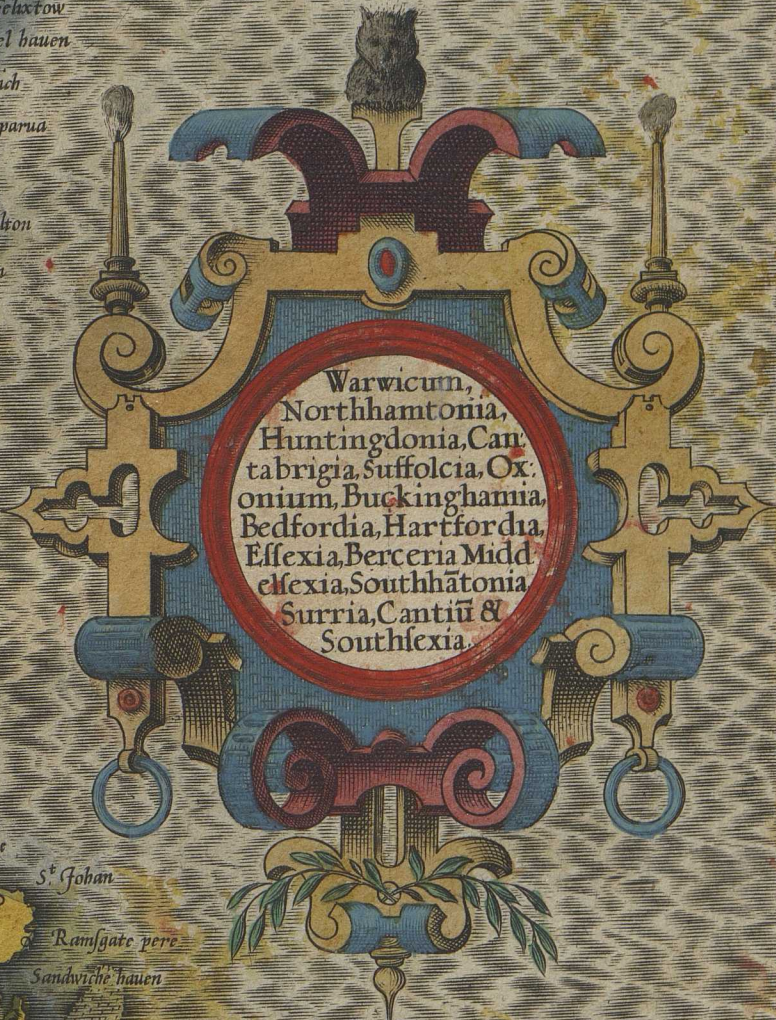 hauen
parua
Warwicum,
Northhamtonia,
Huntingdonia, Can:
tabrigia, Suffolcia, Ox:
onium, Buckinghamia,
Bedfordia, Hartfordia,
Eſſexia, Berceria Midd
elſexia, Southhãtonia
Surria, Cantiũ &
Southſexia.
S.t Johan
Ramſgate pere
Sandwiche hauen